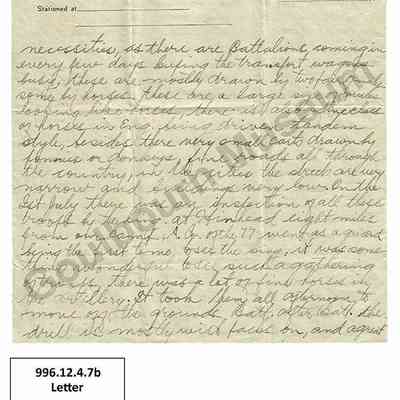 Stationed at
necessities, as there are Battalions coming in
every few days buying the transport wagons
busy, these are mostly drawn by two
some by horses. these are a large
looking like there is also
or horses in Eng, being driven tandem
style, besides there very small carts drawn by
ponnies or donkeys, fine roads all through
the country, in the cities the streets are very
narrow and buildings very low. On the
1st July there was an inspection of all these
troops by the at Hinhead eight miles
from our Camp. of the 77 went as a guard
being the first time, I see the King, it was some
thing wonderful to see such a gathering
of there was a lot of fine horses in
the artillery. It took them all afternoon to
move off the grounds, Batt. after Batt. the
drill is mostly with packs on, and a great
South Peace Regional Archives
996.12.4.7b
Letter